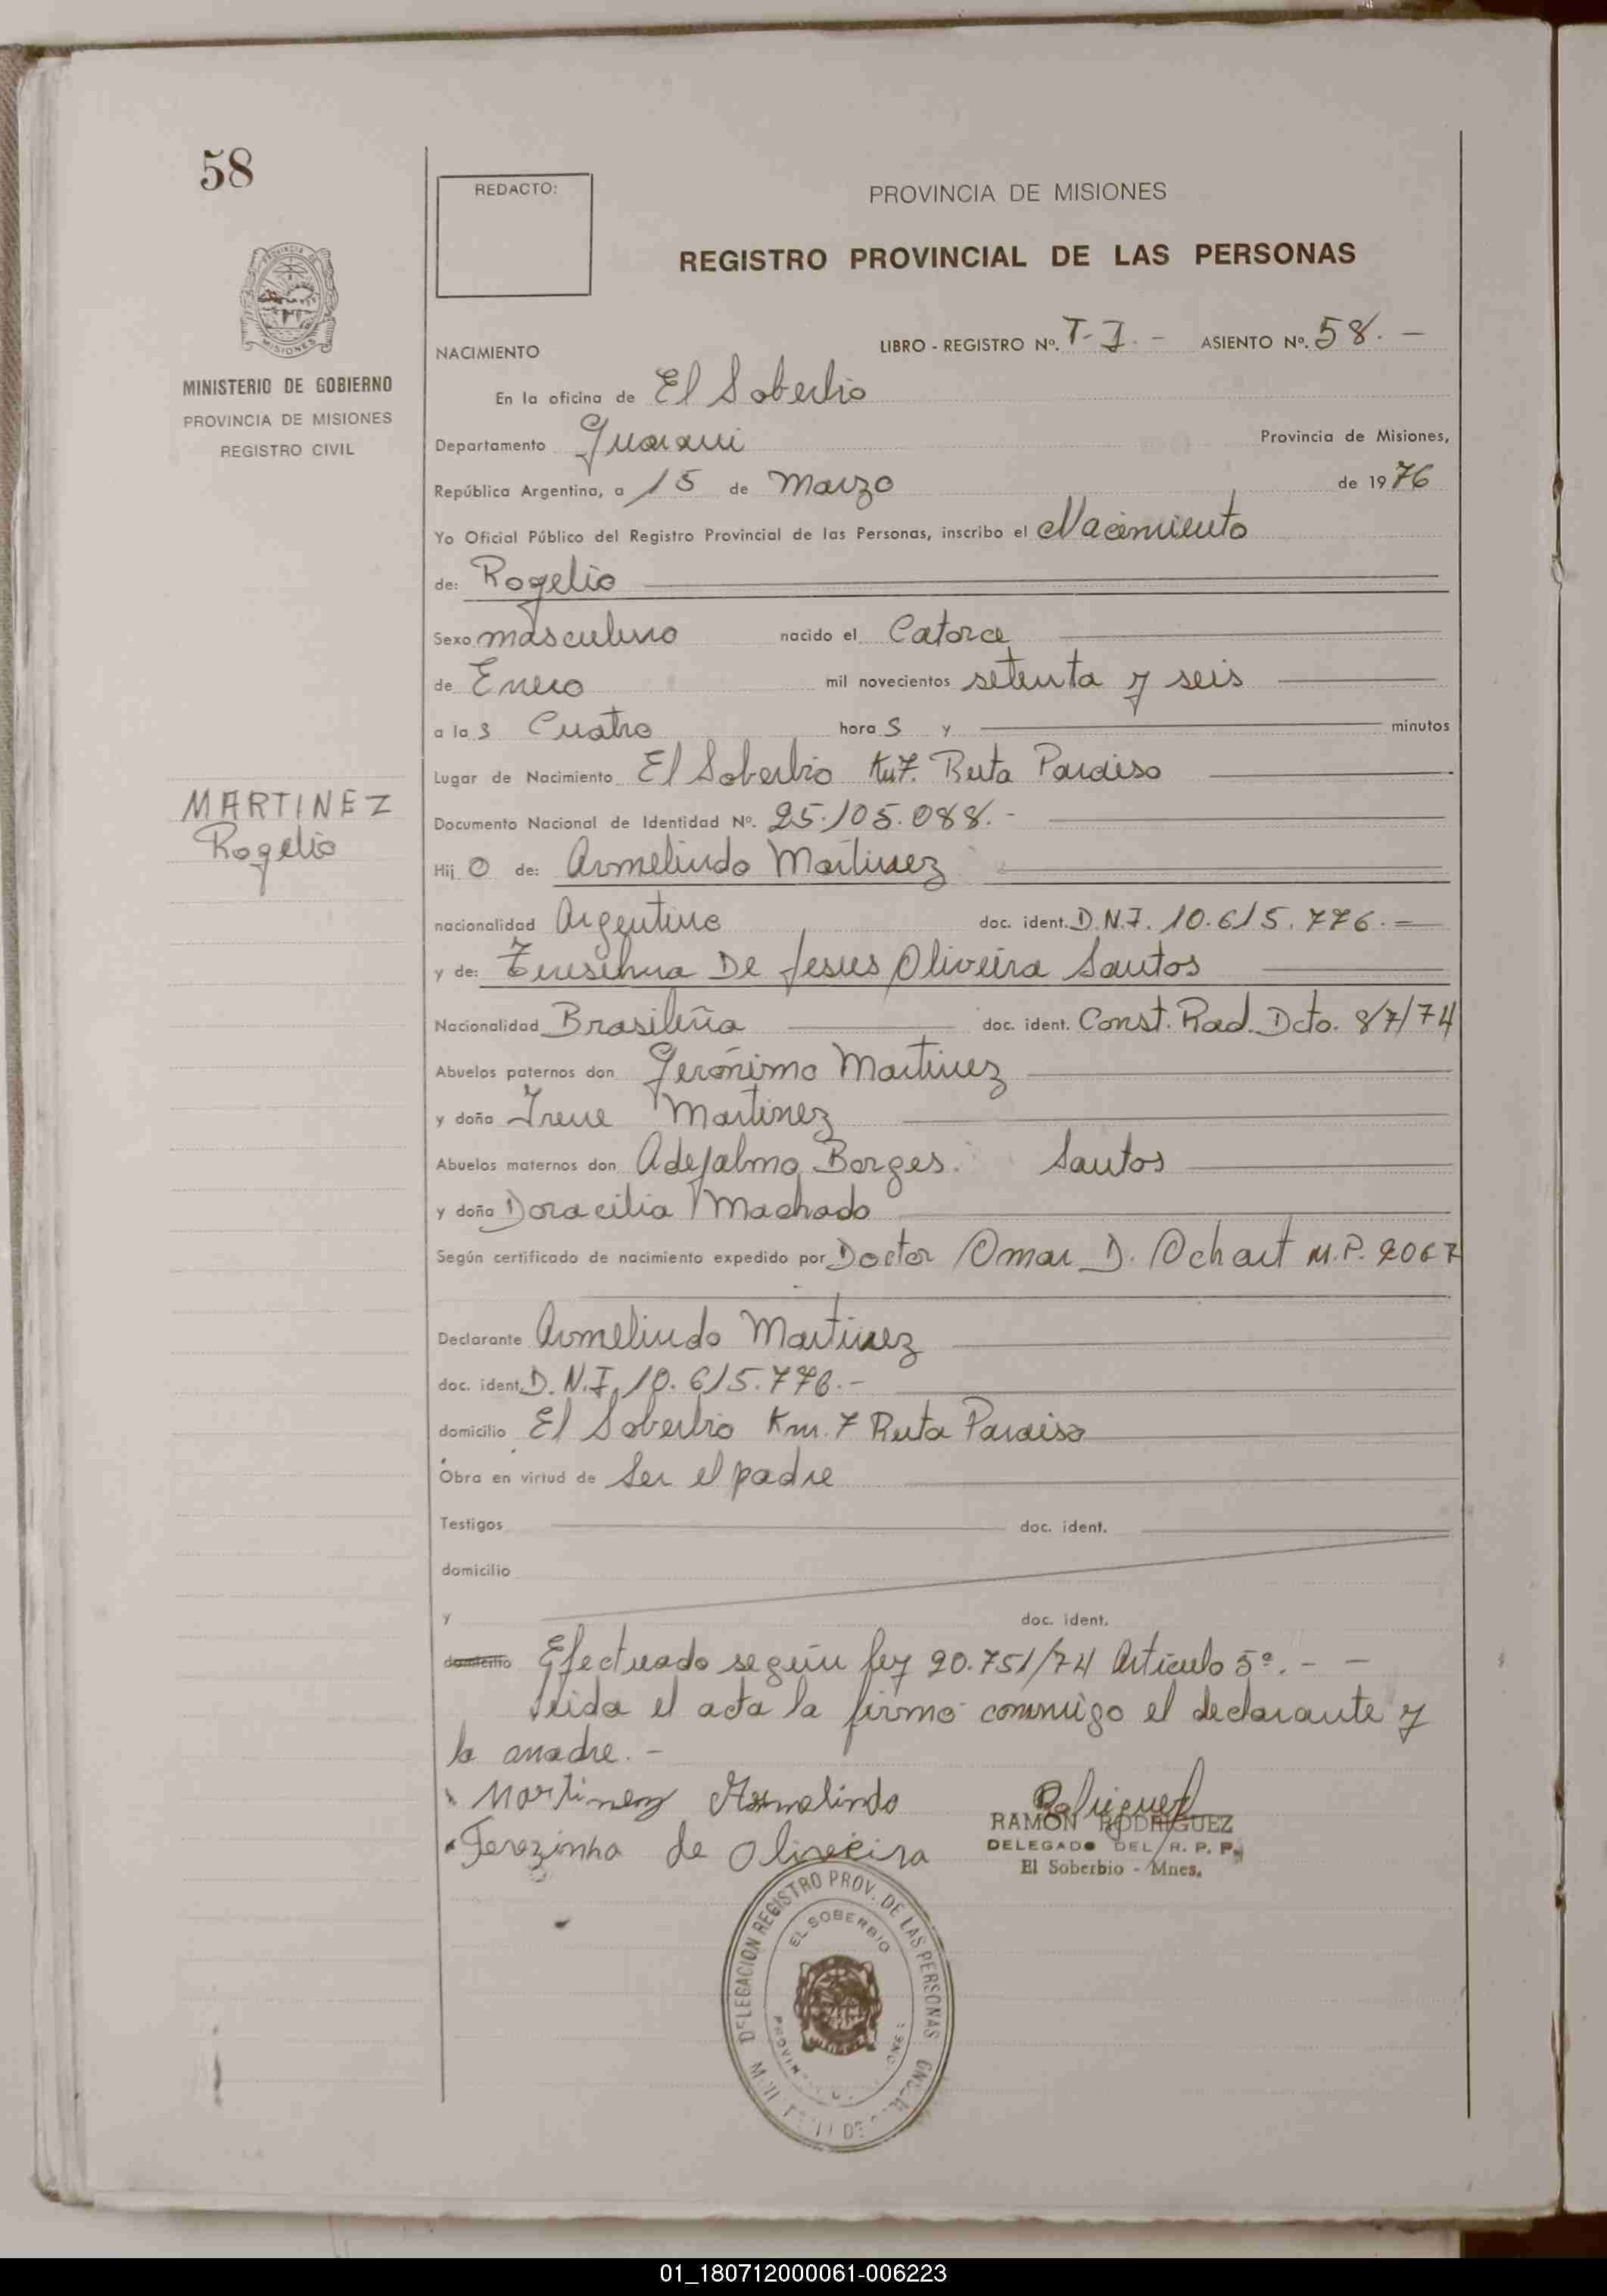 58
REDACTO:
PROVINCIA DE MISIONES
REGISTRO PROVINCIAL DE LAS PERSONAS
MISIONES
MINISTERIO DE GOBIERNO
PROVINCIA DE MISIONES
REGISTRO CIVIL
NACIMIENTO LIBRO - REGISTRO Nº. T-I.- ASIENTO Nº. 58.-
En la oficina de El Soberbio
Departamento Guarani Provincia de Misiones,
República Argentina, a 15 de Marzo de 1976
Yo Oficial Público del Registro Provincial de las Personas, inscribo el Nacimiento
de: Rogelio
Sexo masculino nacido el Catorce
de Enero mil novecientos setenta y seis
a las Cuatro horas y minutos
Lugar de Nacimiento El Soberbio Km7. Ruta Paraiso
MARTINEZ
Rogelio
Documento Nacional de Identidad Nº. 25.105.088.-
Hijo de: Armelindo Martinez
nacionalidad Argentino doc. ident. D.N.I. 10.615.776.=
y de: Teresihna De Jesus Oliveira Santos
Nacionalidad Brasileña doc. ident. Const. Rad. Dcto. 87/74
Abuelos paternos don Gerónimo Martinez
y doña Irene Martinez
Abuelos maternos don Adejalmo Borges. Santos
y doña Doracilia Machado
Según certificado de nacimiento expedido por Doctor Omar D. Ochart M.P. 2067
Declarante Armelindo Martinez
doc. ident. D.N.I. 10.615.776.-
domicilio El Soberbio Km. 7 Ruta Paraiso
Obra en virtud de Ser el padre
Testigos doc. ident.
domicilio
y doc. ident.
domicilio Efectuado según ley 20.751/74 Artículo 5º.- -
leida el acta la firmo conmigo el declarante y
la madre.-
Martinez Armelindo
Terezinha de Oliveira
RAMON RODRIGUEZ
DELEGADO DEL R. P. P.
El Soberbio - Mnes.
DELEGACION REGISTRO PROV. DE LAS PERSONAS
EL SOBERBIO
01_180712000061-006223